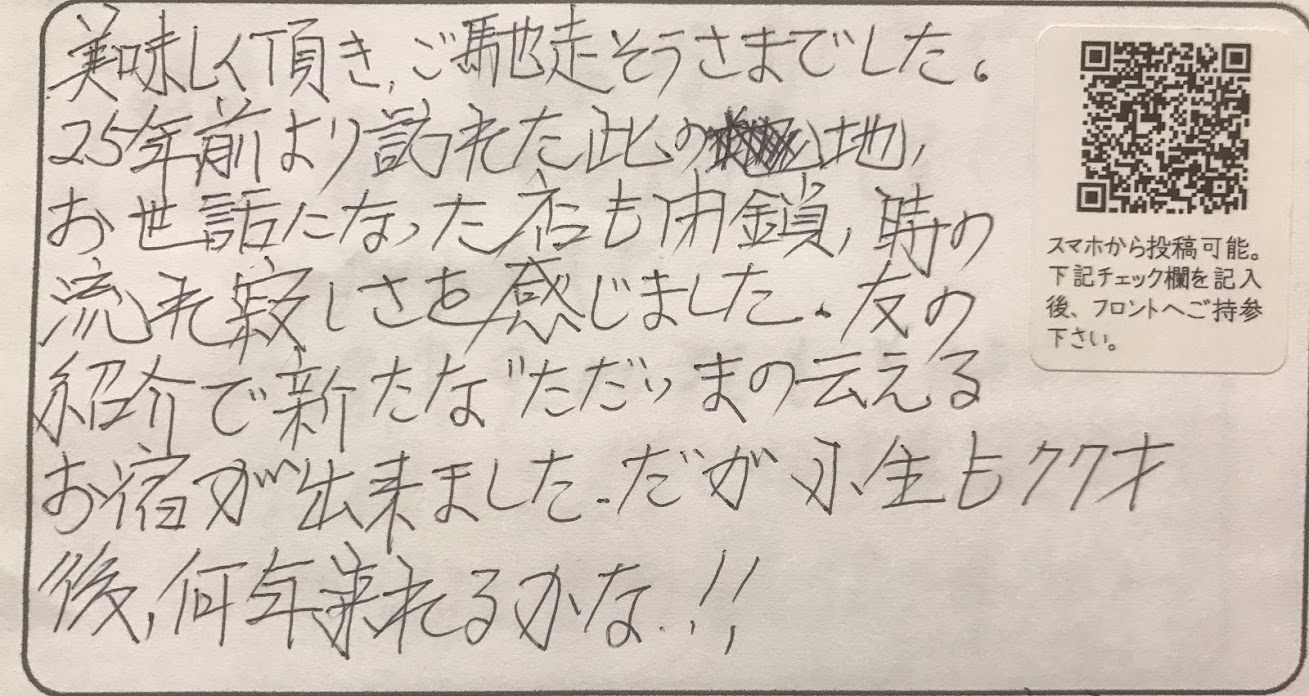 美味しく頂き、ご馳走そうさまでした。
25年前より訪れた此の地、
お世話になった店も閉鎖、時の
流れ寂しさを感じました。友の
紹介で新たな"ただいまの云える
お宿が出来ました。だが小生も77才
後、何年来れるかな!!
スマホから投稿可能。
下記チェック欄を記入
後、フロントへご持参
下さい。